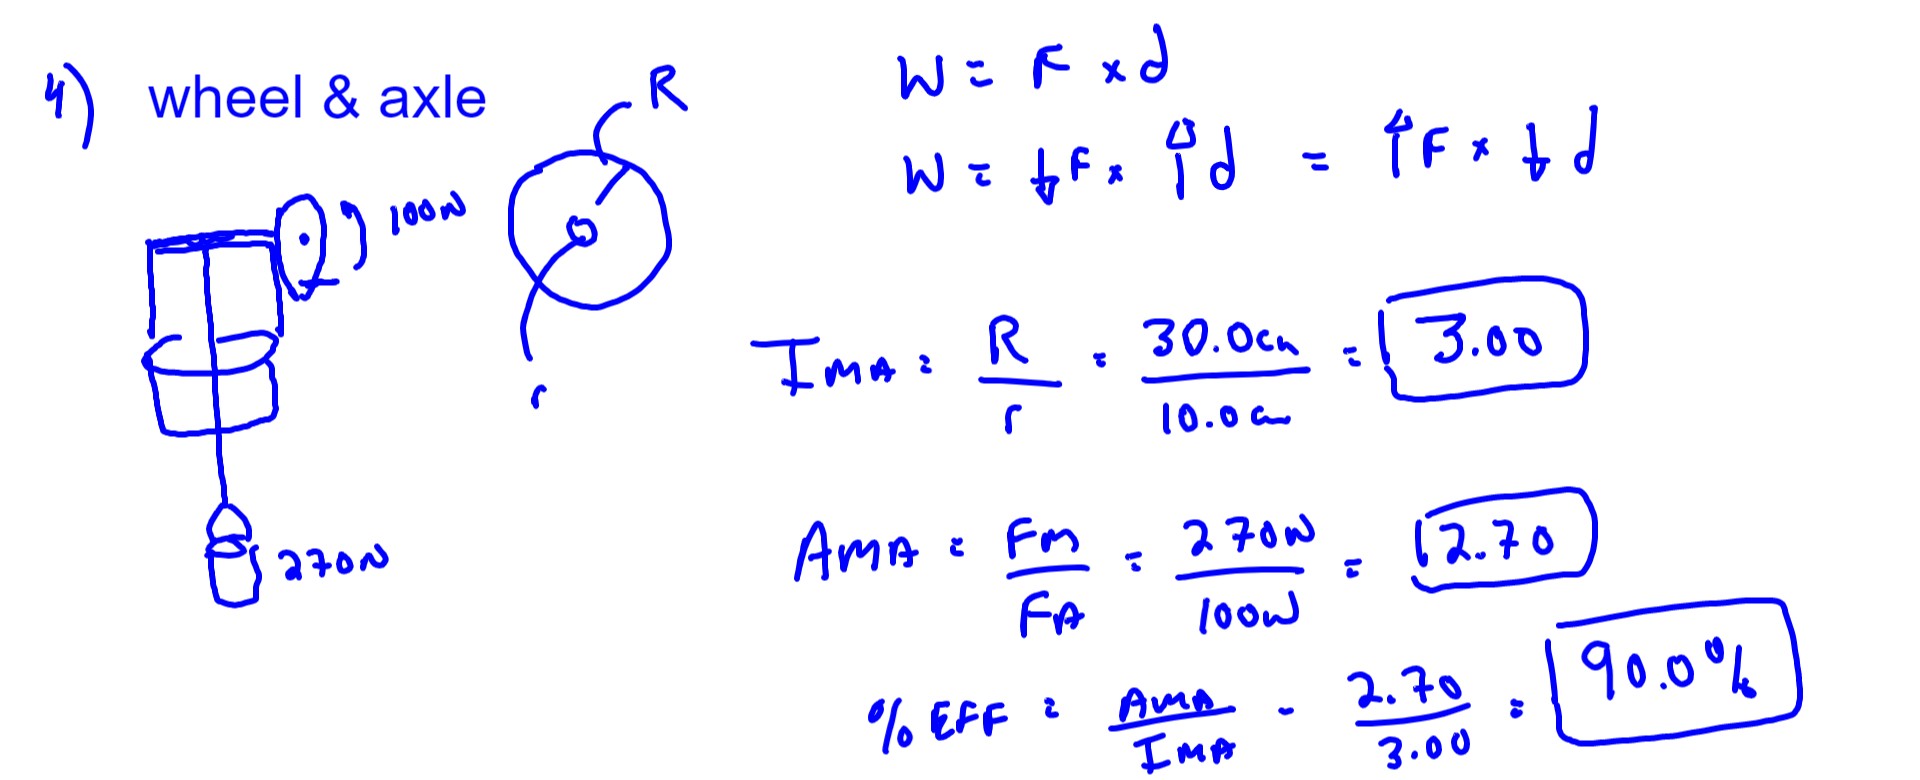 4) wheel & axle
R
r
100N
270N
W = F x d
W = ↓F x ↑d = ↑F x ↓d
IMA = R/r = 30.0cm/10.0cm = 3.00
AMA = FM/FA = 270N/100N = 2.70
% EFF = AMA/IMA - 2.70/3.00 = 90.0%